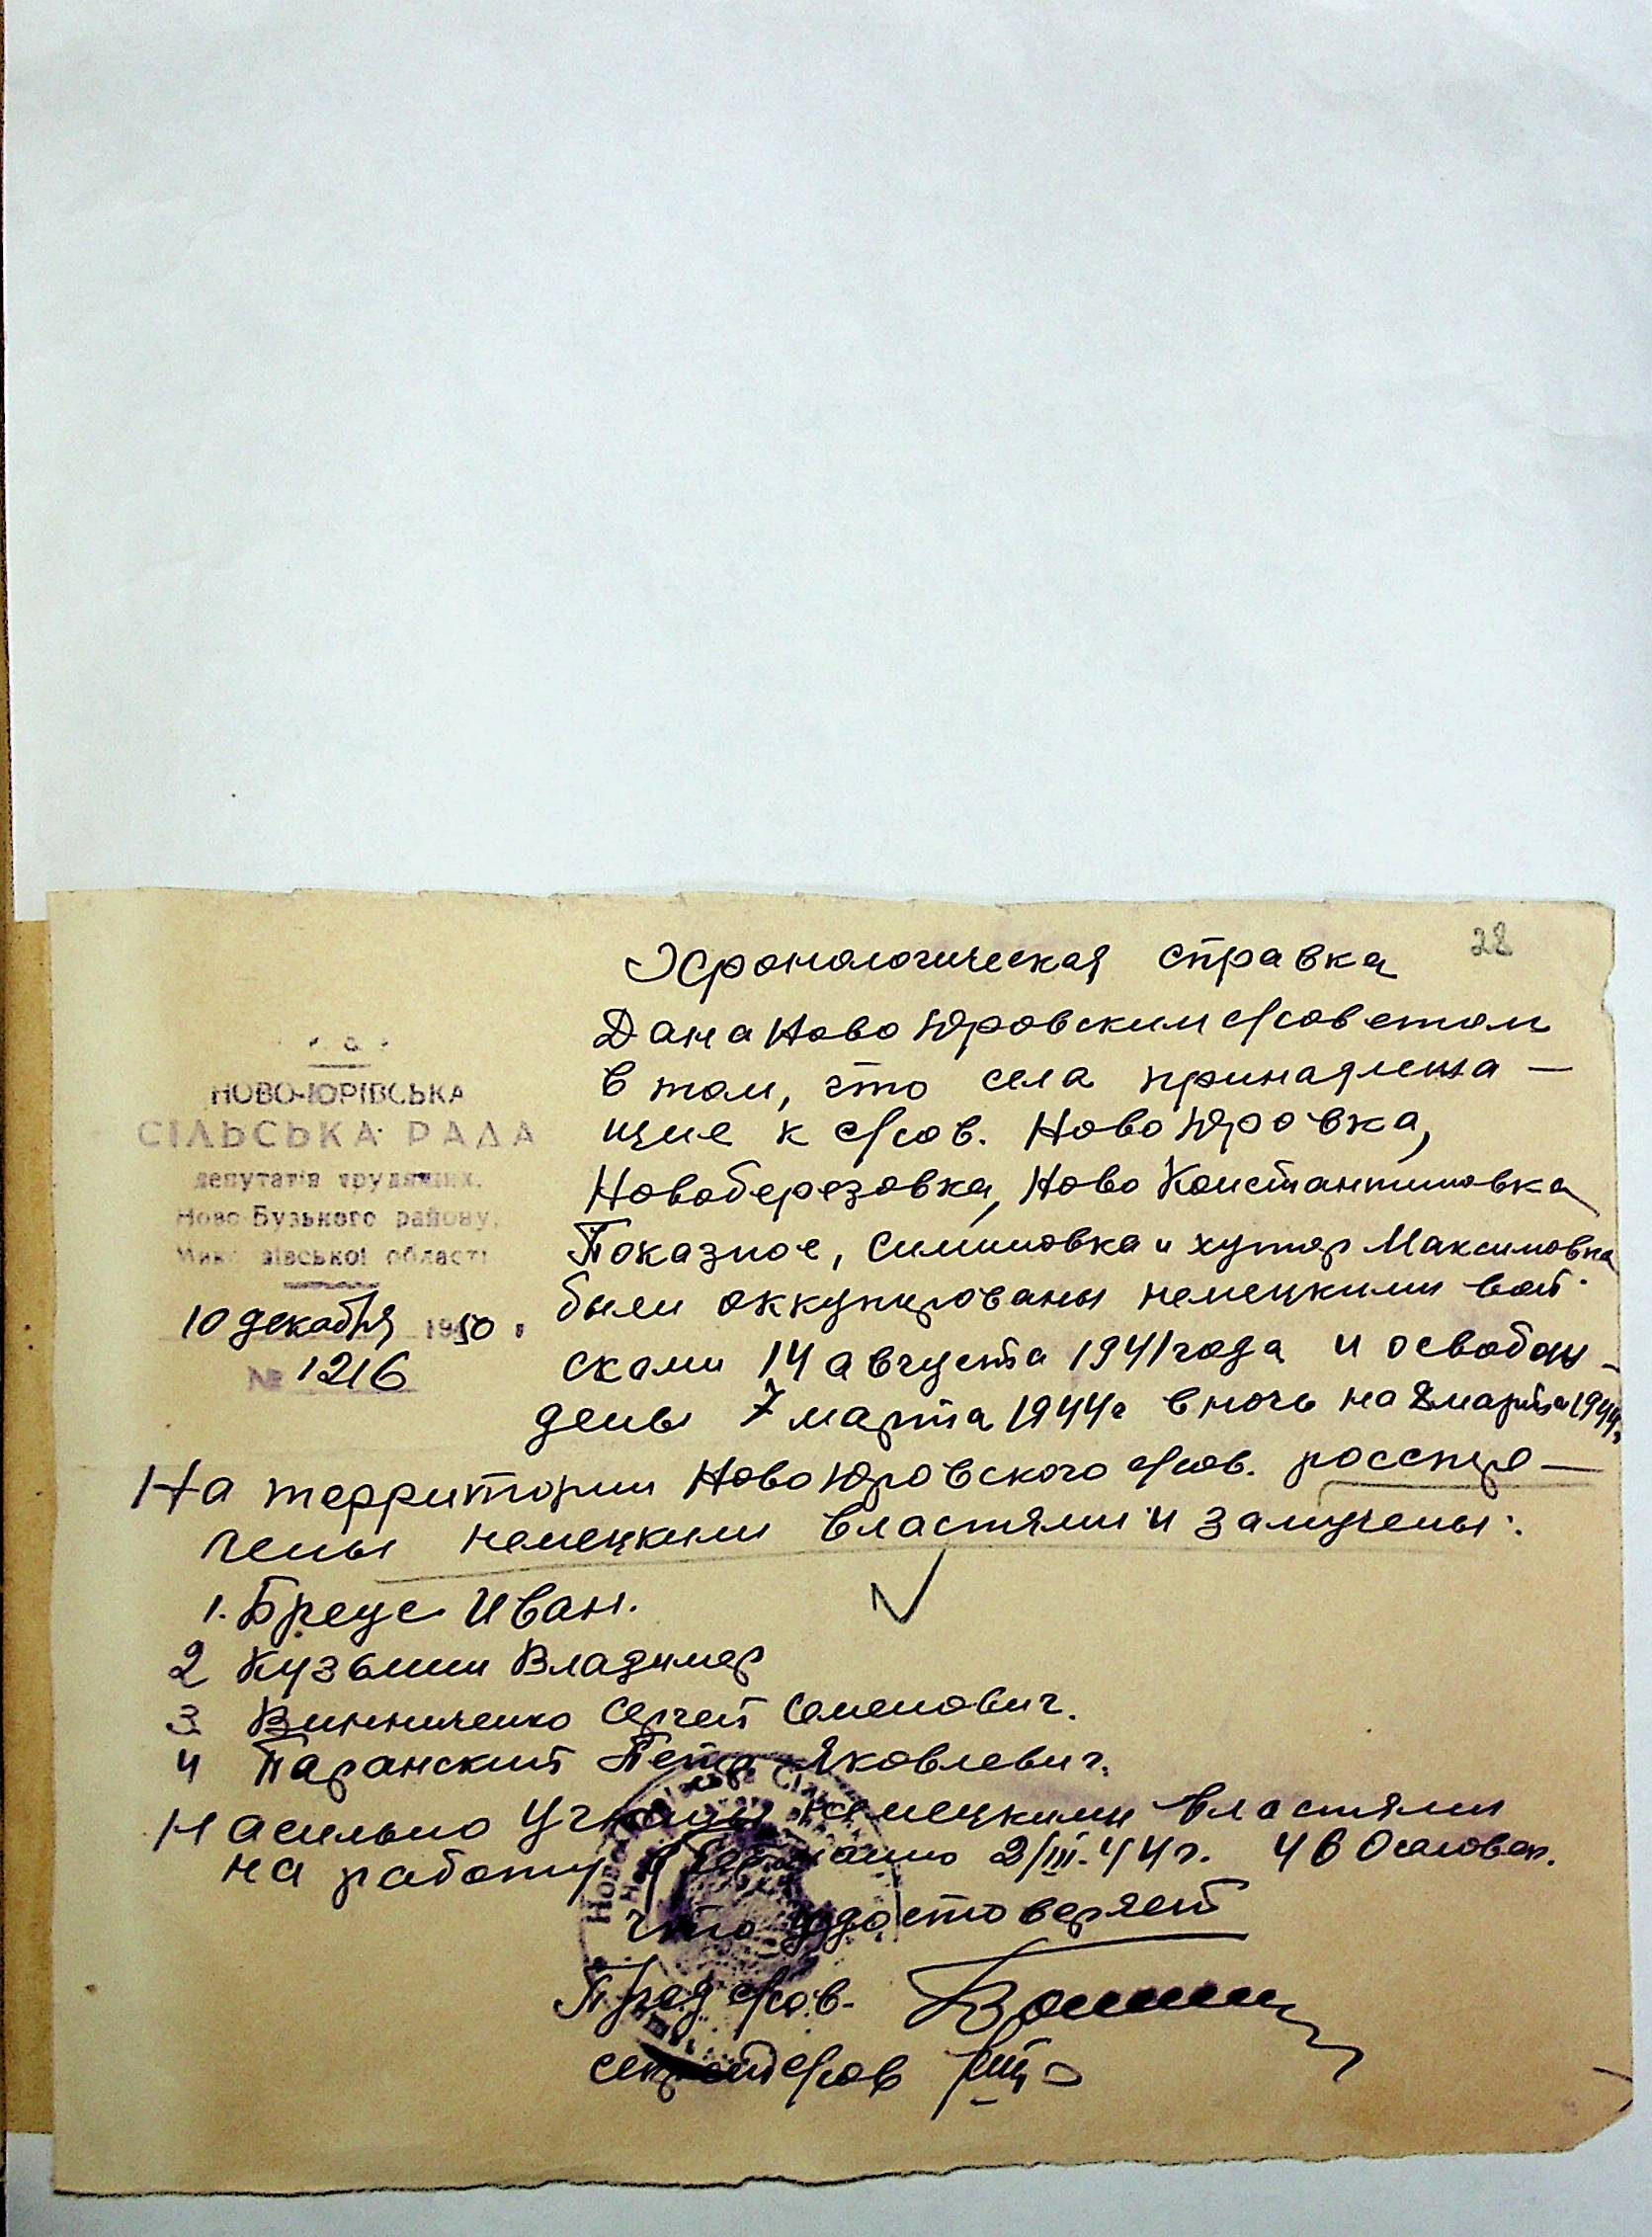 28
Хронологическая справка
Дана Ново Юровским с/советом
в том, что села принадлежа-
щие к с/сов. Ново Юровка,
Новоберезовка, Ново Константиновка
Показное, Симиновка и хутор Максимовка
были оккупированы немецкими вой-
сками 14 августа 1941 года и освобож-
дены 7 марта 1944г в ночь на 8 марта 1944г.
НОВО-ЮРІВСЬКА
СІЛЬСЬКА РАДА
депутатів трудящих.
Ново-Бузького району,
області
10 декабря 1950
№ 1216
На территории Ново Юровского с/сов. росстре-
лены немецкими властями и замучены:
1. Бреус Иван.
2 Кузьмин Владимер
3 Винниченко Сергей Семенович.
4 Паранский Петр Яковлевич.
Насильно угнаны немецкими властями
на работу в Германию 2/III.44г. 46 человек.
что удостоверяет
Пред с/сов.
секрет с/сов